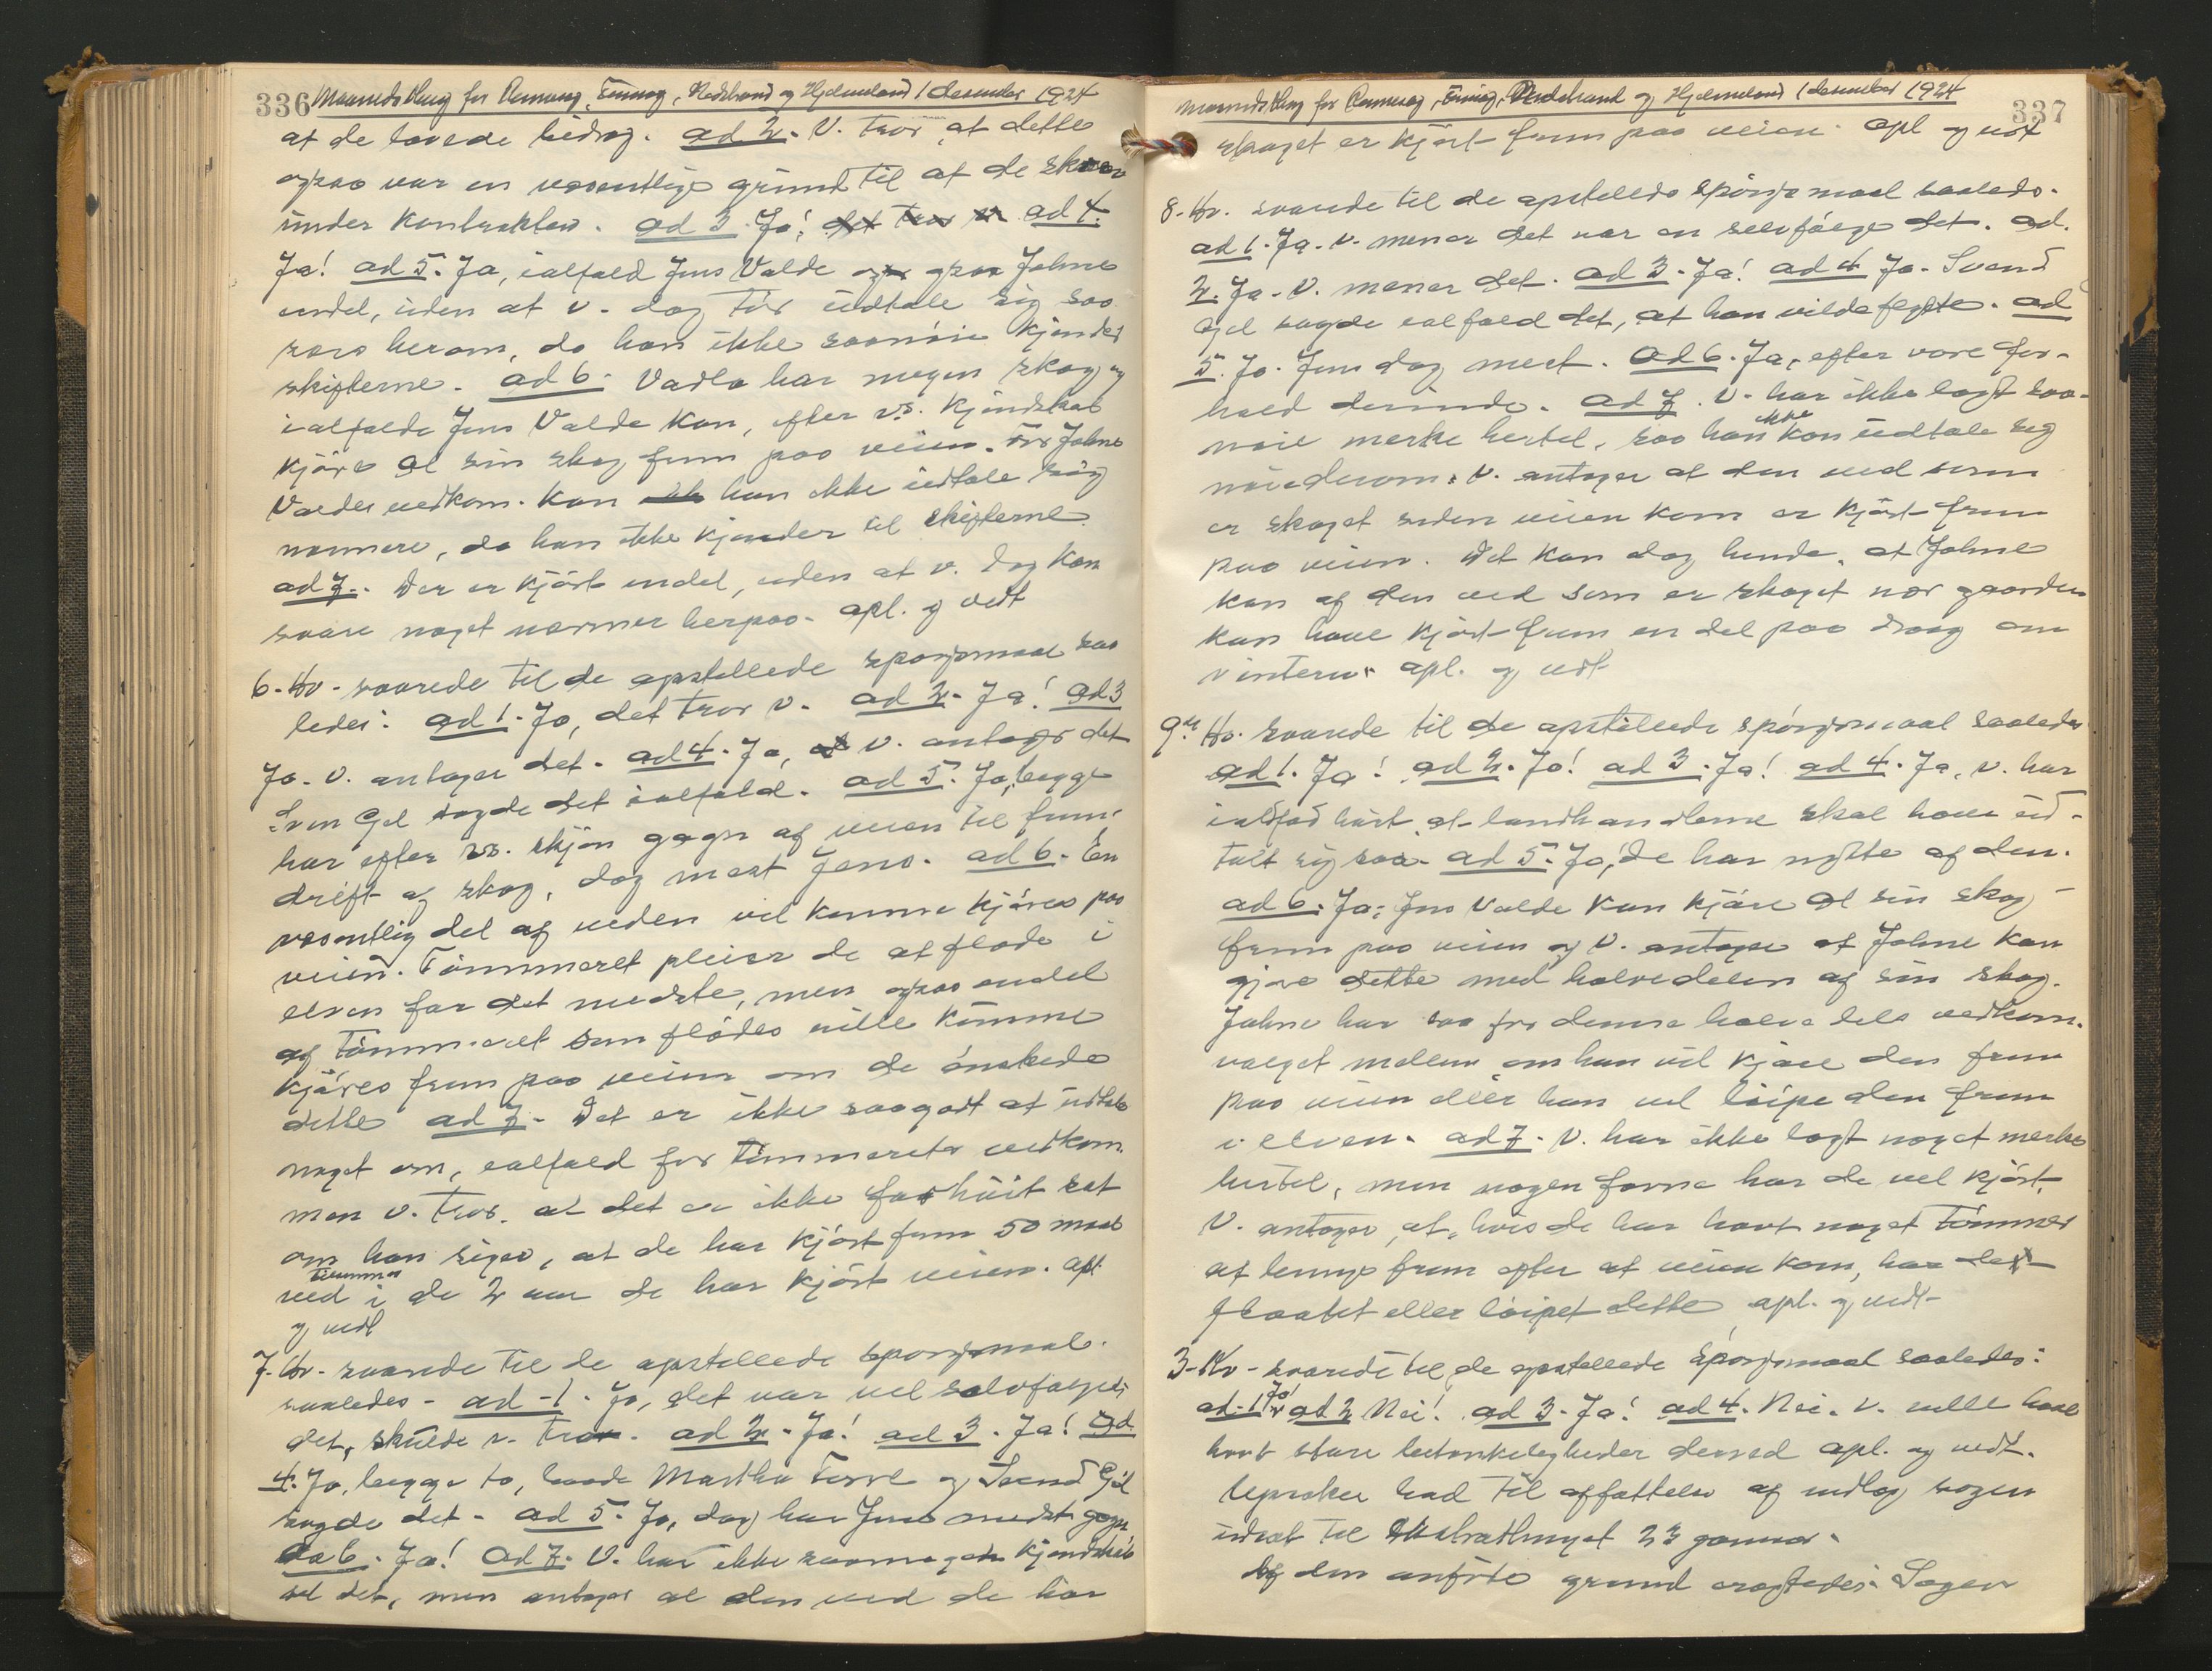 336 Maanedsthing for Aarnang, , Nedstrand og Hjelmeland 1 desember 1924
at de lovede bidrag. ad 2. V. tror at dette
ogsaa var en væsentlige grund til at de skrev
under kontrakten. ad 3. Ja! det tror v. ad 4.
Ja! ad 5. Ja, ialfald Jens Valde og ogsaa Johne
endel, uden at v. dog tör udtale sig saa
herom, da han ikke saanöie kjender
skifterne. ad 6. Vadla har megen skog og
ialfalde Jens Valde kan, efter vs. kjendskab
kjöre al sin skog frem paa veien. For Johne
Valdes vedkom. kan han ikke udtale sig
nærmere, da han ikke kjender til skifterne
ad 7. Der er kjört endel, uden at v. dog kan
svare noget nærmer herpaa. opl. og vedt
6. Hv. svarede til de opstillede spörjsmaal saa
ledes: ad 1. Ja, det tror v. ad 2. Ja! ad 3
Ja. v. antager det. ad 4. Ja, v. antager det
Sven Gil sagde det ialfald. ad 5. Ja, begge
har efter vs. skjön gagn af veien til frem-
drift af skog, dog mest Jens. ad 6. En
væsentlig del af veden vil kunne kjöres paa
veien. Tömmeret pleier de at flöde i
elven for det medste, men ogsaa endel
af tömmeret som flödes ville kunne
kjöres frem paa veien om de önskede
dette ad 7. Det er ikke saagodt at udtale
noget om, ialfald for tömmerets vedkom.
men v. tror, at det er ikke for höit sat
om han siger, at de har kjört frem 50 maal
tömmer
ved i de 2 aar de har kjört veien. opl.
og vedt
7. Hv. svarede til de opstillede spörjsmaal
saaledes - ad 1. Ja, det var vel selvfölgelig
det, skulde v. tro. ad 2. Ja! ad 3. Ja! ad
4. Ja, begge to, baade Martha og Svend Gil
sagde det. ad 5. Ja, dog har Jens medst gagn
ad 6. Ja! ad 7. V. har ikke saamegen kjendskab
til det, men antager at den ved de har
Maanedsthing for , , Nedstrand og Hjelmeland 1 desember 1924 337
skoget er kjört frem paa veien. opl og vedt
8. Hv. svarede til de opstillede spörjsmaal saaledes.
ad 1. Ja. v. mener det var en selvfölge det. ad.
2. Ja. V. mener det. ad 3. Ja! ad 4 Ja. Svend
Gil sagde ialfald det, at han vilde flytte. ad
5. Ja. Jens dog mest. ad 6. Ja, efter vore for-
hold derinde. ad 7. V. har ikke lagt saa-
nöie merke hertil, saa han ikke kan udtale sig
nöie derom. V. antager at den ved som
er skoget siden veien kom er kjört frem
paa veien. Det kan dog hende, at Johne
kan af den ved som er skoget nær gaarden
kan have kjört frem en del paa drog om
vinteren. opl. og vedt
9de Hv. svarede til de opstillede spörjsmaal saaledes
ad 1. Ja! ad 2. Ja! ad 3. Ja! ad 4. Ja, v. har
ialfald hört at landhandlerne skal have ud-
talt sig saa. ad 5. Ja, de har nytte af den.
ad 6. Ja, Jens Valde kan kjöre al sin skog
frem paa veien og V. antager at Johne kan
gjöre dette med halvedelen af sin skog.
Johne har saa for denne halve dels vedkom.
valget mellem om han vil kjöre den frem
paa veien eller han vil löipe den frem
i elven. ad 7. V. har ikke lagt noget merke
hertil, men nogen favne har de vel kjört.
V. antager, at, hvis de har havt noget tömmer
at bringe frem efter at veien kom, har de
flaatet eller löipet dette opl. og vedt-
3. Kv. svarede til de opstillede spörjsmaal saaledes:
ad. 1. Ja! ad 2 Nei! ad 3. Ja! ad 4. Nei. v. ville have
havt store betænkeligheder derved opl. og vedt.
bad til affattelse af indlæg sagen
udsat til thinget 2de januar.
Af den anförte grund eragtedes: Sagen